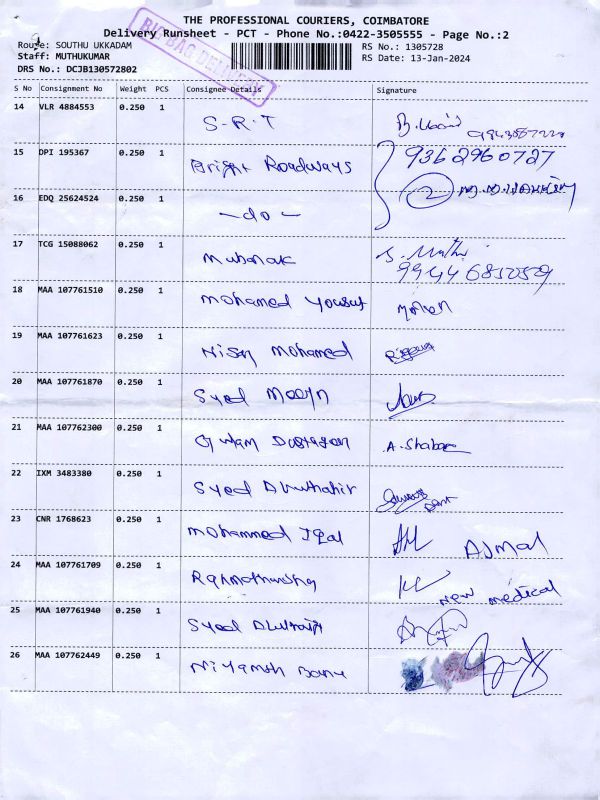 THE PROFESSIONAL COURIERS, COIMBATORE
Delivery Runsheet - PCT - Phone No.:0422-3505555 - Page No.:2
Route: SOUTHU UKKADAM
RS No.: 1305728
Staff: MUTHUKUMAR
RS Date: 13-Jan-2024
DRS No.: DCJB130572802
BIG BAG DELIVERY
S No Consignment No Weight PCS Consignee Details Signature
14 VLR 4884553 0.250 1 S.R.T
15 DPI 195367 0.250 1 Bright Roadways 9362960727
16 EDQ 25624524 0.250 1 -do-
17 TCG 15088062 0.250 1 Mubarak S. Muthu
18 MAA 107761510 0.250 1 Mohamed Yousuf
19 MAA 107761623 0.250 1 Mohamed
20 MAA 107761870 0.250 1 Syed
21 MAA 107762300 0.250 1 A. Shabar
22 IXM 3483380 0.250 1 Syed
23 CNR 1768623 0.250 1 Mohammed Iqal AJmal
24 MAA 107761709 0.250 1 New medical
25 MAA 107761940 0.250 1 Syed
26 MAA 107762449 0.250 1 Banu